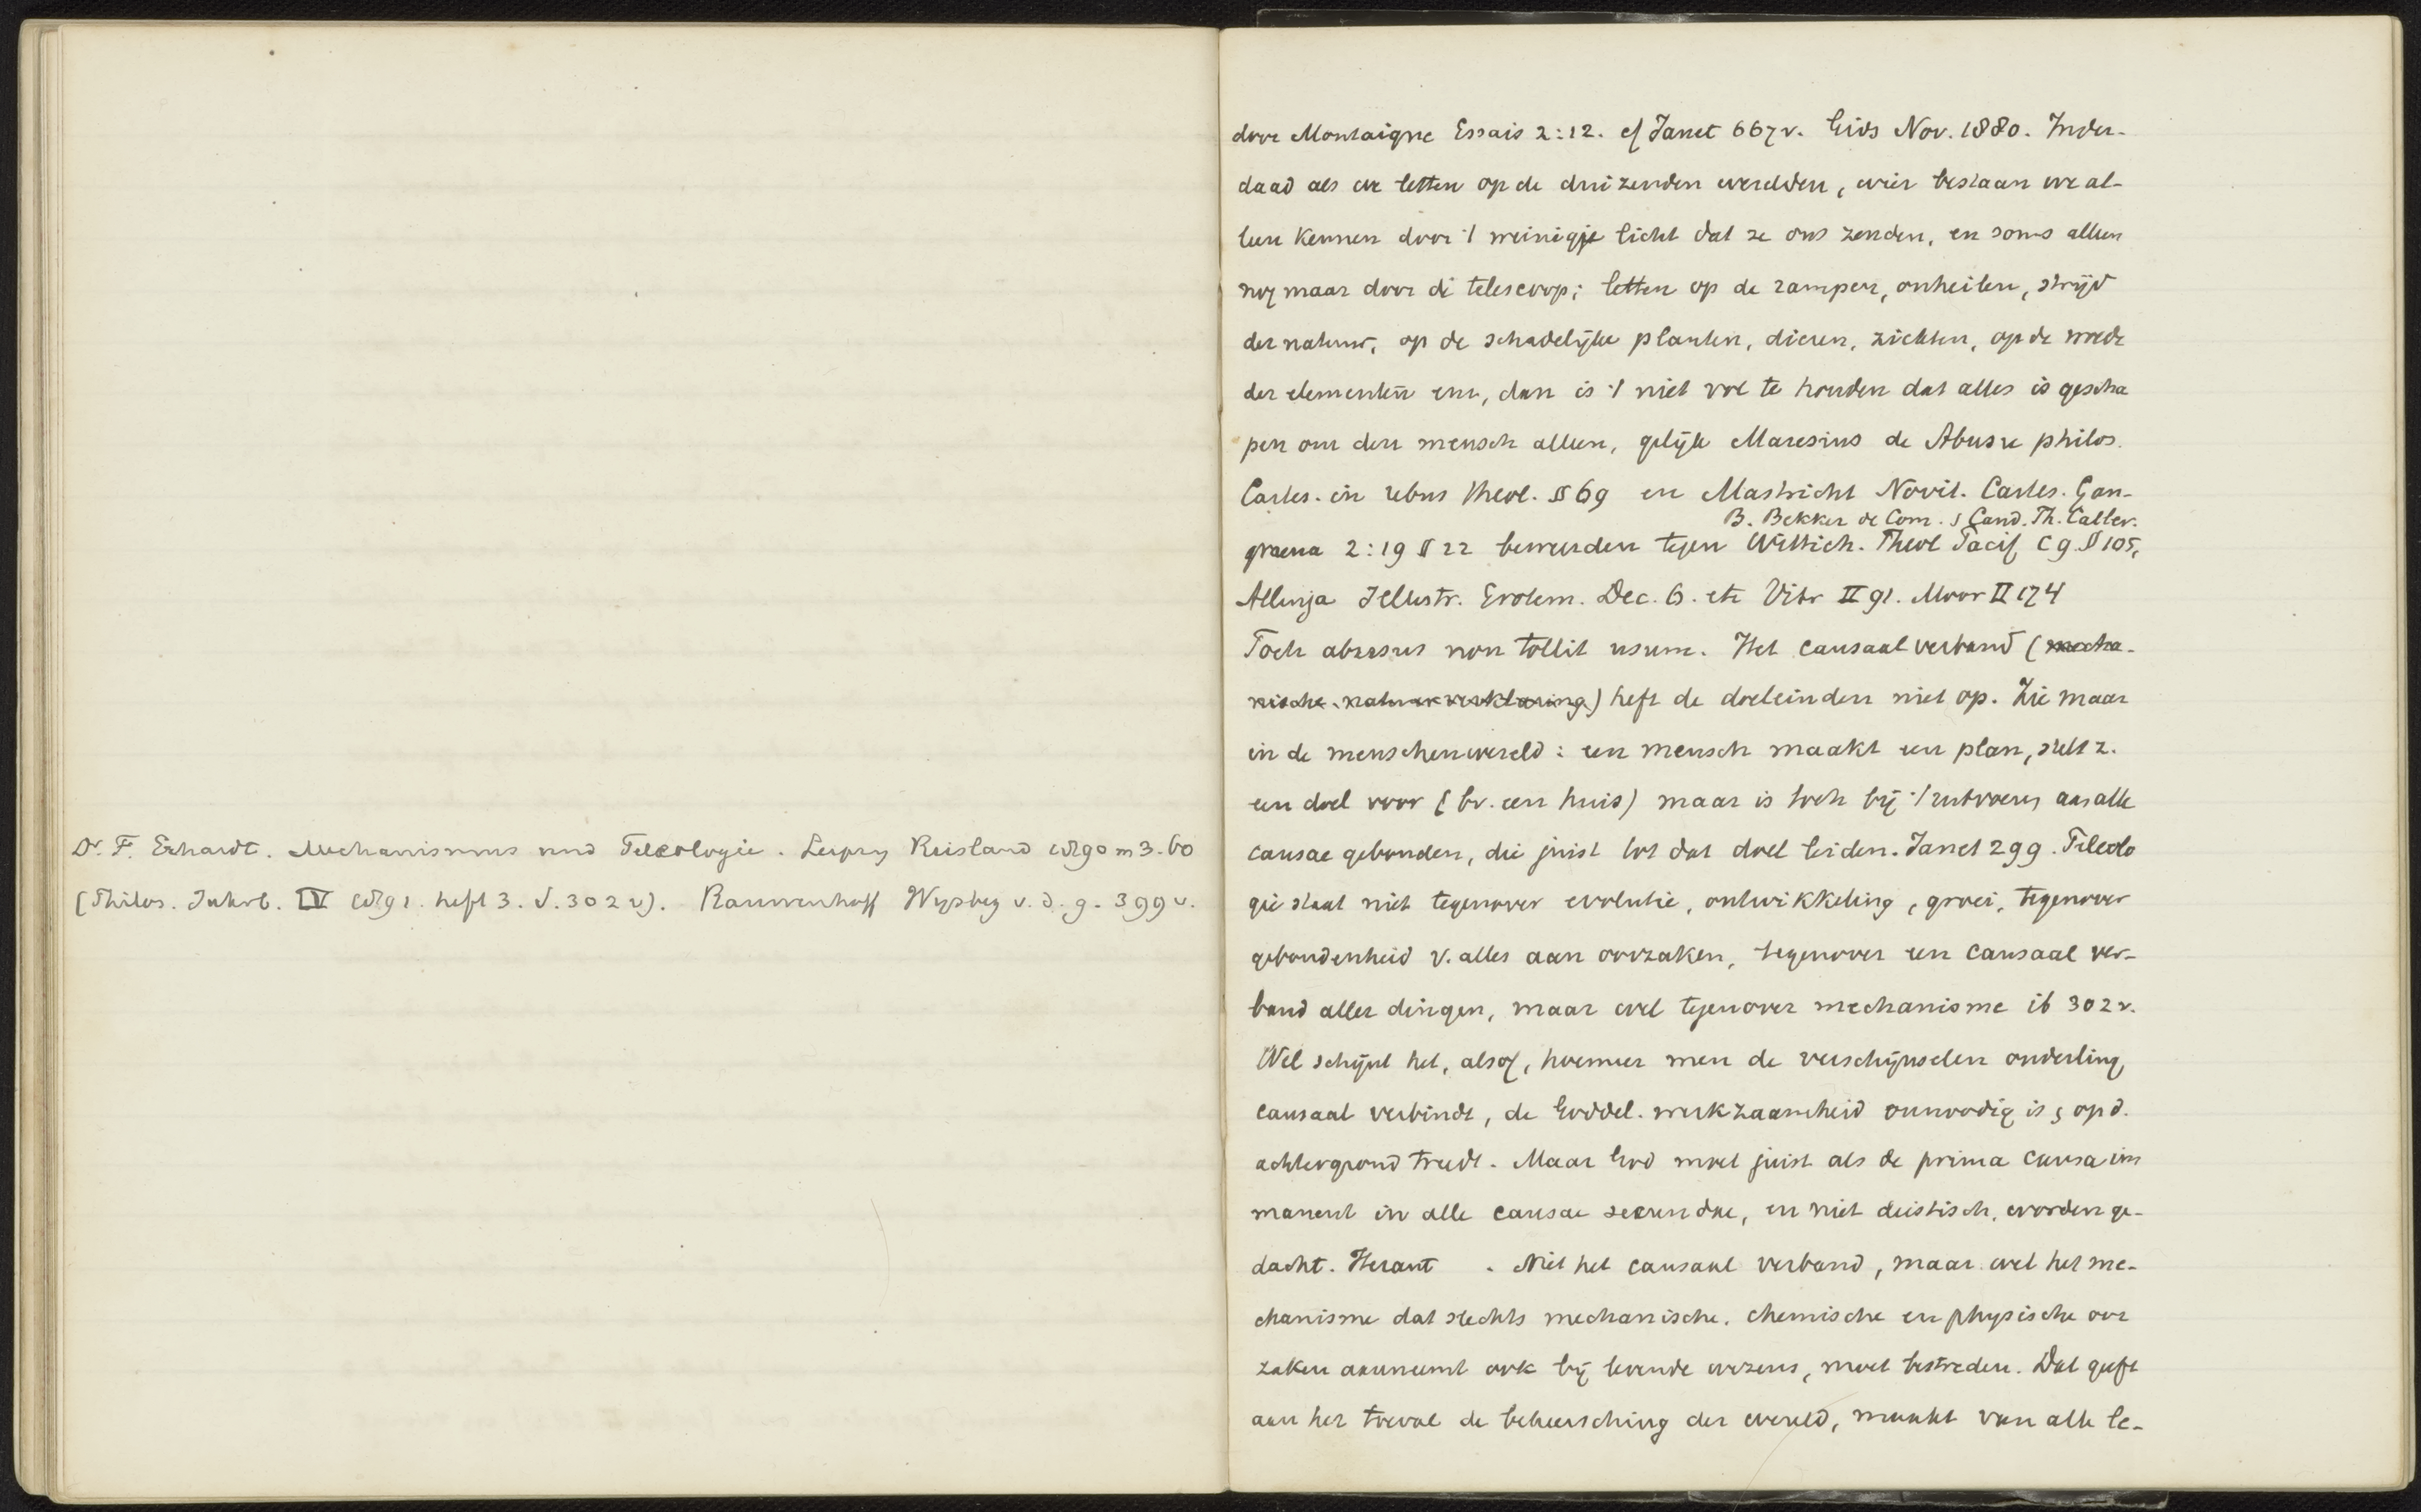 Dr. F. Erhardt. Mechanismus und Teleologie. Leipzig Reisland 1890 m 3.60
(Philos. Jahrb. IV 1891. heft 3. S. 302 v). Rauwenhoff Wijsbeg v. d. g. 399 v.
door Montaigne Essais 2:12. cf Janet 667 v. Gids Nov. 1880. Inder-
daad als we letten op de duizenden werelden, wier bestaan we al-
leen kennen door 't weinigje licht dat ze ons zenden, en soms alleen
nog maar door di telescoop; letten op de rampen, onheilen, strijd
der natuur, op de schadelijke planten, dieren, ziekten, op de woede
der elementen enz, dan is 't niet vol te houden dat alles is gescha
pen om den mensch alleen, gelijk Maresius de Abusu philos.
Cartes. in rebus theol. § 69 en Mastricht Novit. Cartes. Gan-
B. Bekker de Com. s Cand. Th. Catter.
graena 2:19 § 22 beweerden tegen Wittich. Theol Pacif c 9. § 105,
Allinga Illustr. Erotem. Dec. 6. etc Vitr II 91. Moor II 174
Toch abusus non tollit usum. Het causaal verband (mecha-
nische natuurverklaring) heft de doeleinden niet op. Zie maar
in de menschenwereld: een mensch maakt een plan, stelt z.
een doel voor (bv. een huis) maar is toch bij 't uitvoeren aan alle
causae gebonden, die juist tot dat doel leiden. Janet 299. Teleolo
gie staat niet tegenover evolutie, ontwikkeling, groei, tegenover
gebondenheid v. alles aan oorzaken, tegenover een causaal ver-
band aller dingen, maar wel tegenover mechanisme ib 302 v.
Wel schijnt het, alsof, hoemeer men de verschijnselen onderling
causaal verbindt, de Goddel. werkzaamheid onnoodig is s op d.
achtergrond treedt. Maar God moet juist als de prima causa im
manent in alle causae secundae, en niet deistisch, worden ge-
dacht. Herant . Niet het causaal verband, maar wel het me-
chanisme dat slechts mechanische, chemische en physische oor
zaken aanneemt ook bij levende wezens, moet bestreden. Dat geeft
aan het toeval de beheersching der wereld, maakt van alle le-